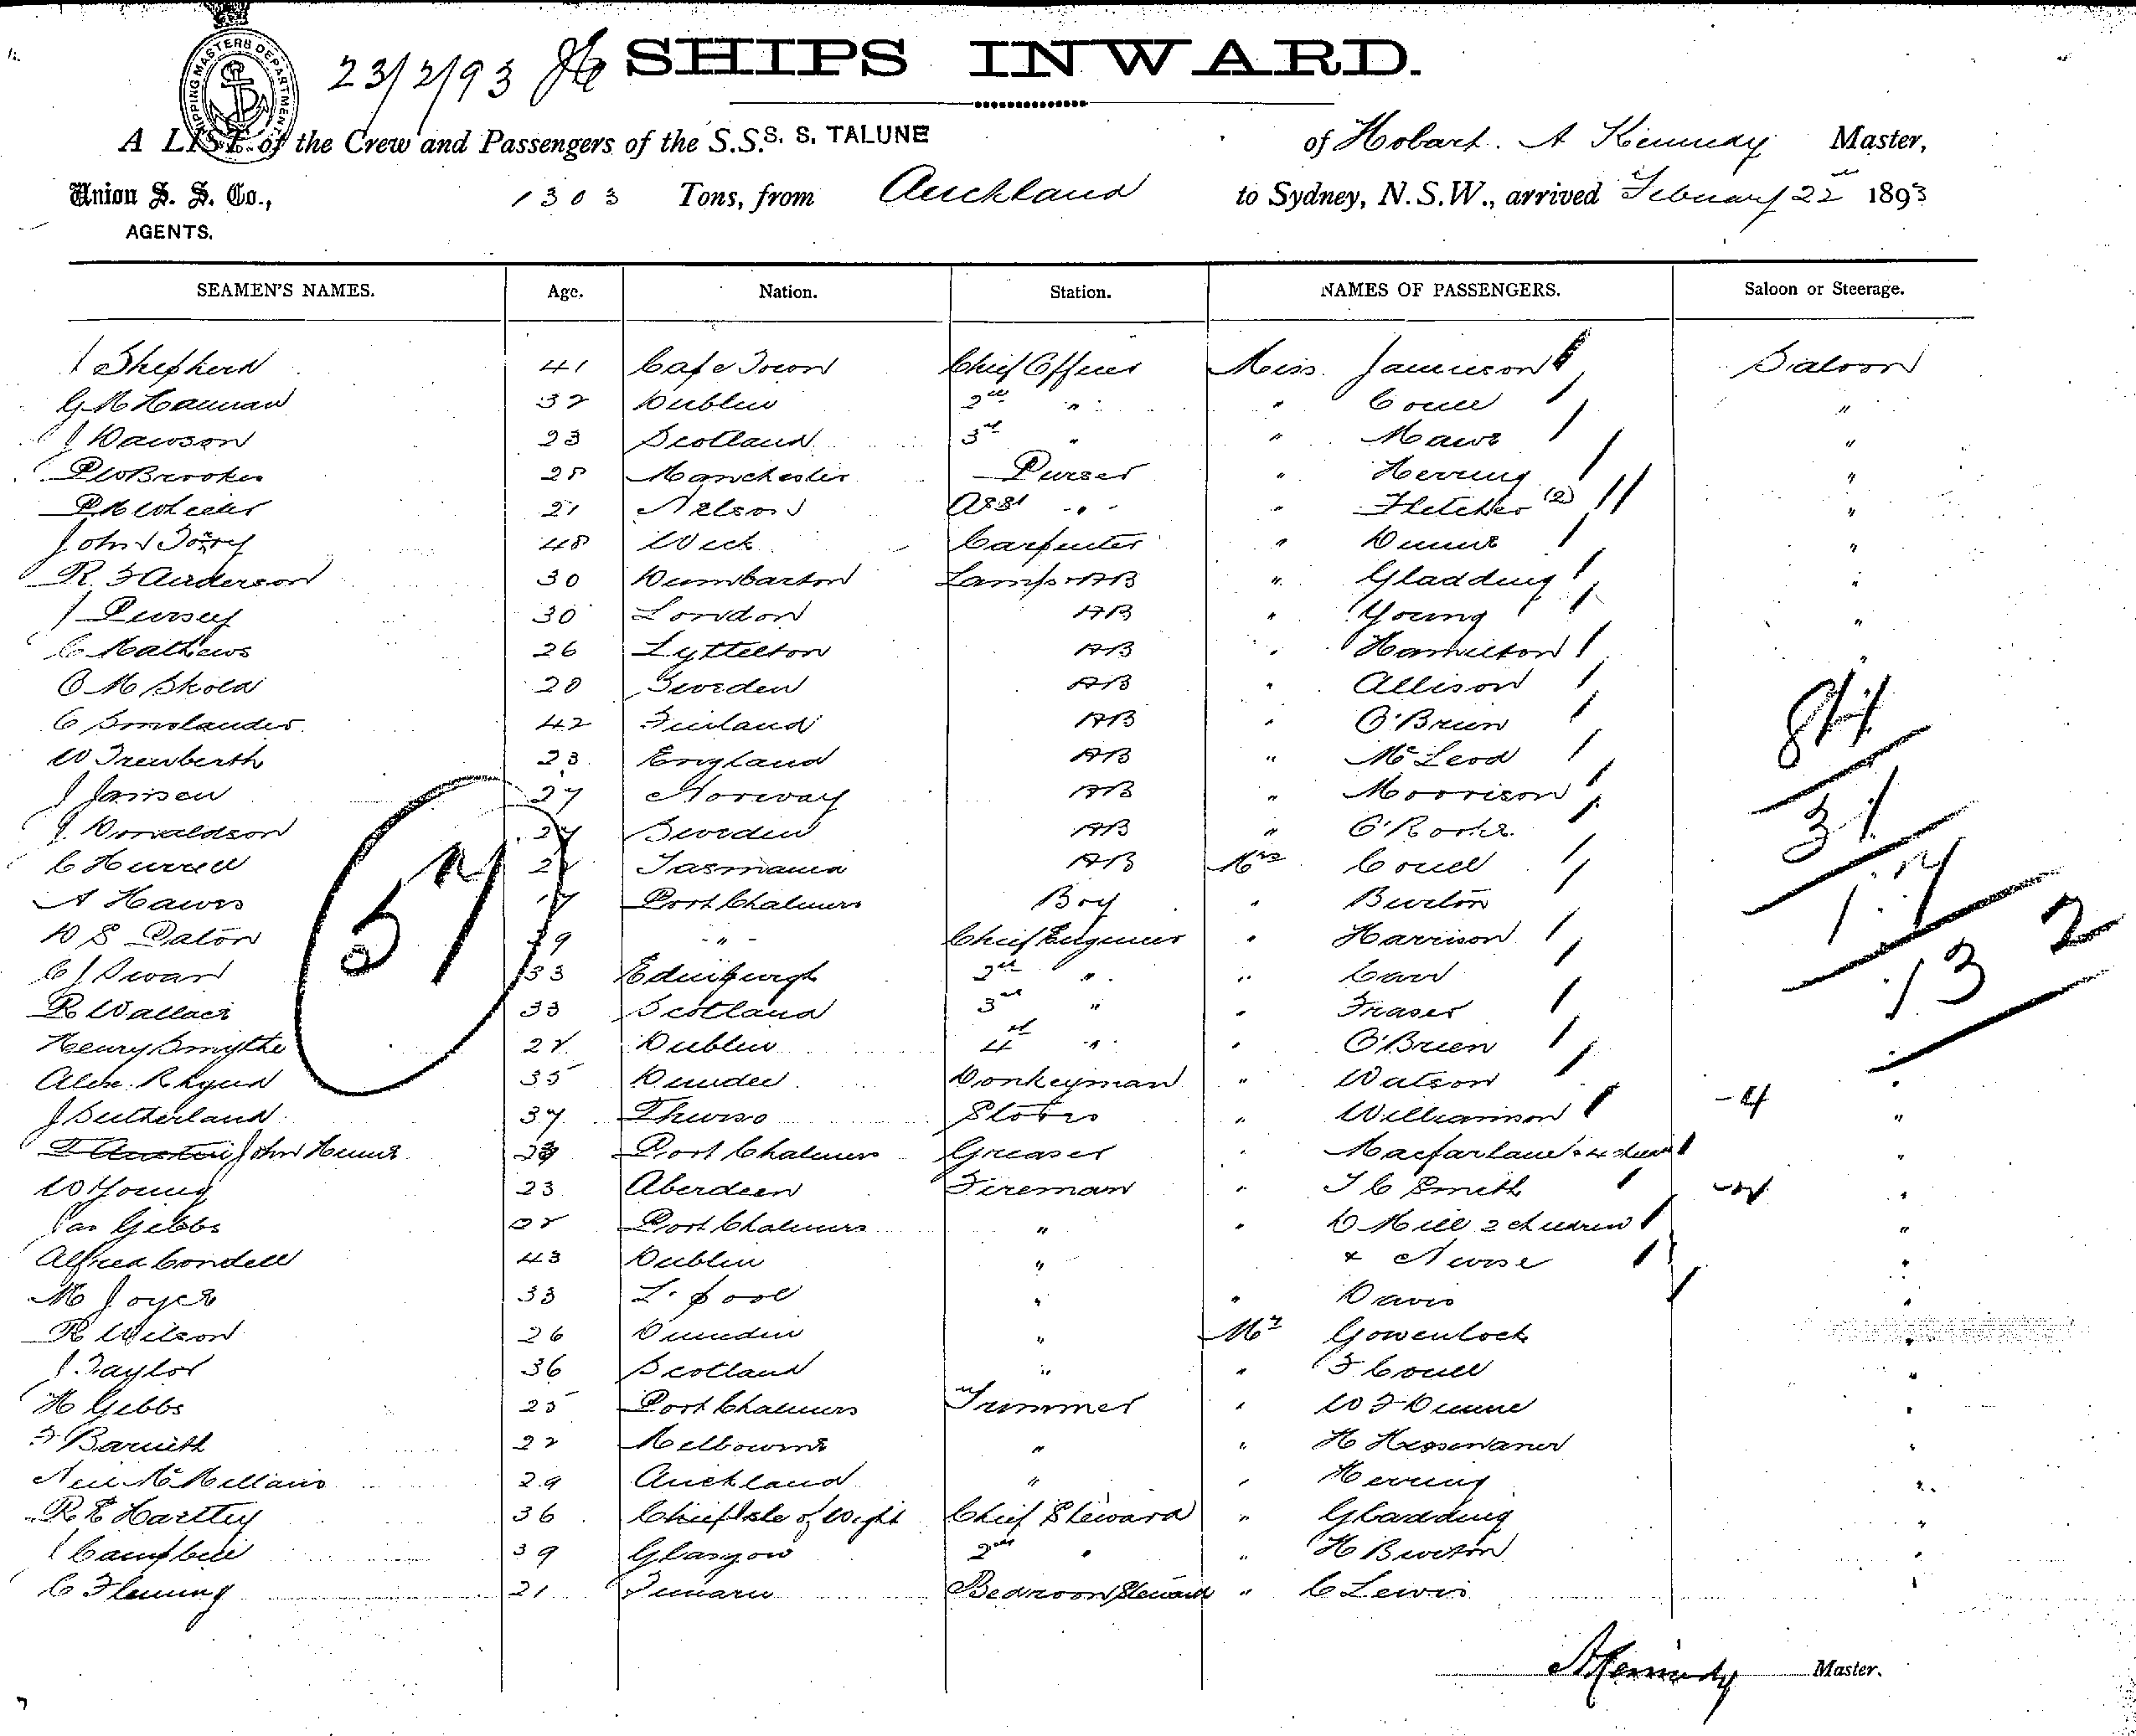 SHIPPING MASTERS DEPARTMENT
23/2/93
SHIPS INWARD.
A LIST of the Crew and Passengers of the S.S. S. S. TALUNE of Hobart. A Kennedy Master,
Union S. S. Co., 1303 Tons, from Auckland to Sydney, N.S.W., arrived February 22nd 1893
AGENTS.
SEAMEN'S NAMES. Age. Nation. Station. NAMES OF PASSENGERS. Saloon or Steerage.
J Shepherd 41 Cape Town Chief Officer Miss Jamieson Saloon
G M Hannan 32 Dublin 2nd " " Coull "
J Dawson 23 Scotland 3rd " " Mawe "
P W Brookes 28 Manchester Purser " Herring "
P H Wheeler 21 Nelson Asst " " Fletcher (2) "
John 48 Wick Carpenter " Dunne "
R F Anderson 30 Dumbarton Lamps + AB " Gladding "
J Pursey 30 London AB " Young "
C Mathews 26 Lyttelton AB " Hamilton "
O M Skold 20 Sweden AB " Allison
C Smolander 42 Finland AB " O'Brien 84
W Trewberth 23 England AB " McLeod
J Jansen 27 Norway AB " Morrison 31
J. Donaldson 27 Sweden AB " O'Rorke
C Hurrell Tasmania AB Mrs Coull 17
A Hawes 17 Port Chalmers Boy " Burton
57
D S Paton 39 " Chief Engineer " Harrison 132
C J Swan 33 Edinburgh 2nd " " Carr
R Wallace 33 Scotland 3rd " " Fraser
Henry Smythe 22 Dublin 4th " " O'Brien
Alex. Rhynd 35 Dundee Donkeyman " Watson "
J Sutherland 37 Thurso Stores " Williamson - 4 "
John Hume Port Chalmers Greaser " Macfarlane + 4 "
W Young 23 Aberdeen Fireman " T C Smith "
Jas Gibbs 22 Port Chalmers " " D Mill 2 children "
Alfred Condell 43 Dublin " + Nurse "
M Joyce 33 L'pool " " Davis "
R Wilson 26 Dunedin " Mr Gowenlock "
J. Taylor 36 Scotland " " F Coull "
H Gibbs 25 Port Chalmers Trimmer " W F Dunne "
F Barnith 22 Melbourne " " H "
Neil McMillan 29 Auckland " " Herring "
R E Hartley 36 Chief Isle of Wight Chief Steward " Gladding "
J Campbell 39 Glasgow 2nd " " H Burton "
C Fleming 21 Timaru Bedroom Steward " C Lewis "
A Kennedy Master.